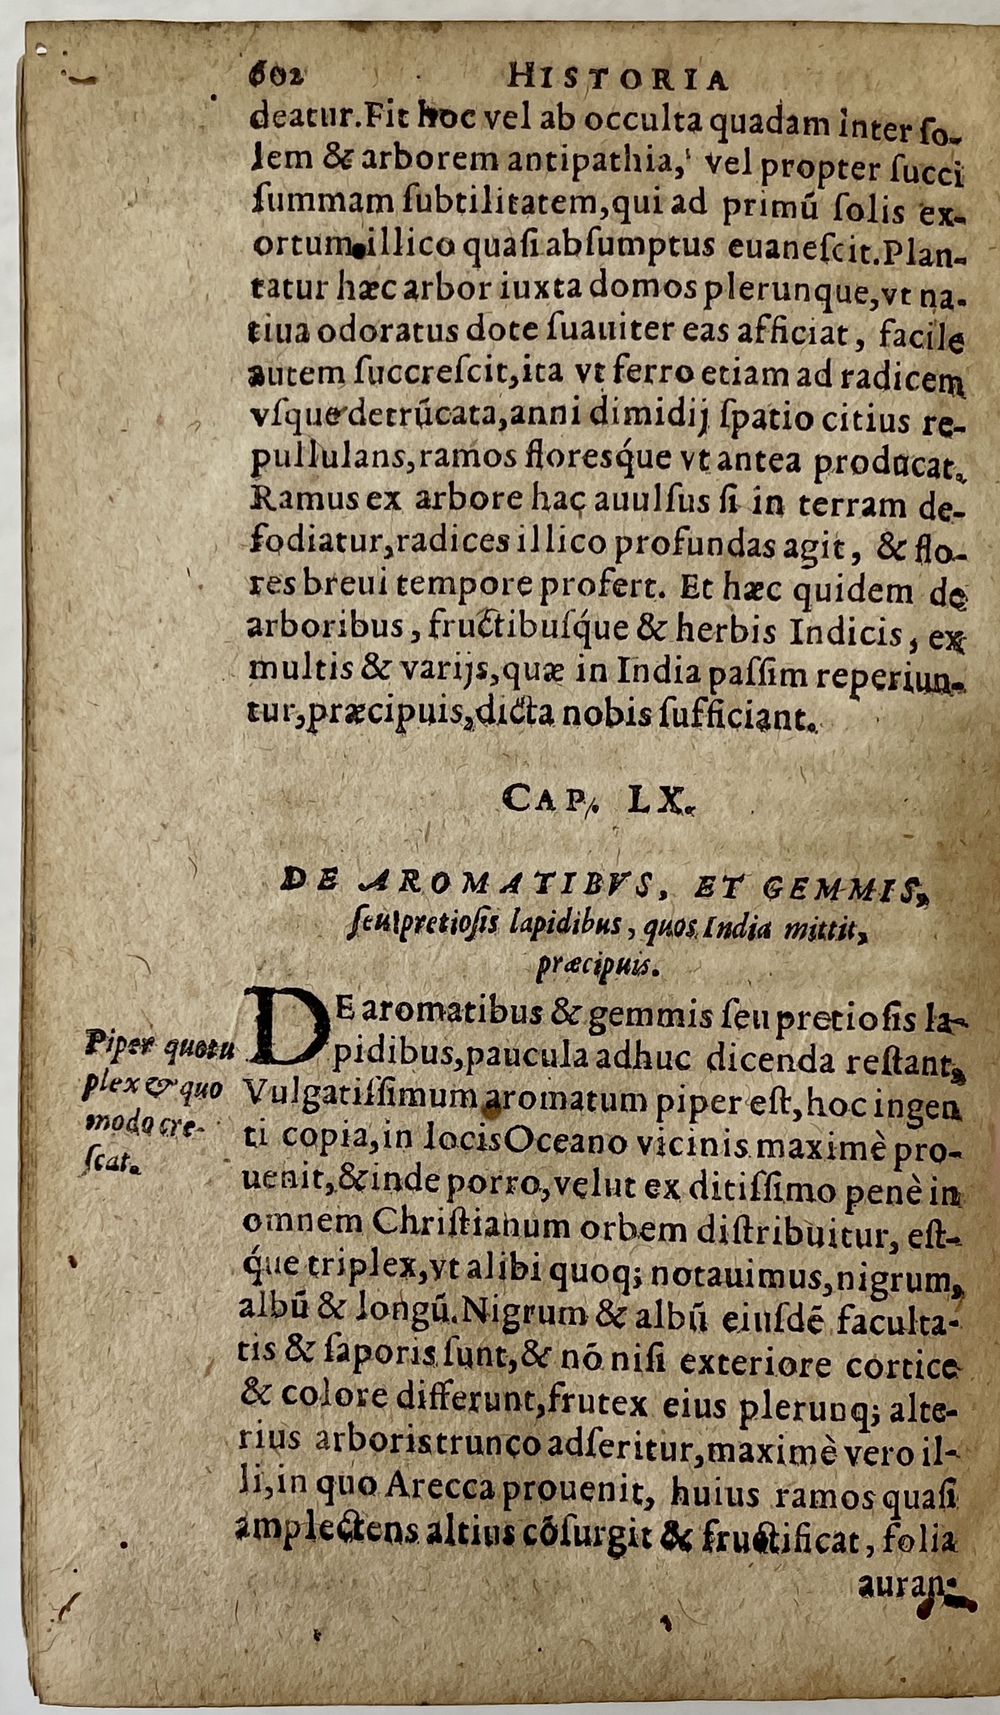 602 HISTORIA
deatur. Fit hoc vel ab occulta quadam inter ſo-
lem & arborem antipathia, vel propter ſucci
ſummam ſubtilitatem, qui ad primũ ſolis ex-
ortum illico quaſi abſumptus euaneſcit. Plan-
tatur hæc arbor iuxta domos plerunque, vt na-
tiua odoratus dote ſuauiter eas afficiat, facile
autem ſuccreſcit, ita vt ferro etiam ad radicem
vſque detrũcata, anni dimidij ſpatio citius re-
pullulans, ramos floresq́ue vt antea producat.
Ramus ex arbore hac auulſus ſi in terram de-
fodiatur, radices illico profundas agit, & flo-
res breui tempore profert. Et hæc quidem de
arboribus, fructibuſq́ue & herbis Indicis, ex
multis & varijs, quæ in India paſſim reperiun-
tur, præcipuis, dicta nobis ſufficiant.
CAP. LX.
DE AROMATIBVS, ET GEMMIS,
ſeu pretioſis lapidibus, quos India mittit,
præcipuis.
DE aromatibus & gemmis ſeu pretioſis la-
pidibus, paucula adhuc dicenda reſtant,
Vulgatiſſimum aromatum piper eſt, hoc ingen
ti copia, in locis Oceano vicinis maximè pro-
uenit, & inde porro, velut ex ditiſſimo penè in
omnem Chriſtianum orbem diſtribuitur, eſt-
q́ue triplex, vt alibi quoq; notauimus, nigrum,
albũ & longũ. Nigrum & albũ eiuſdẽ faculta-
tis & ſaporis ſunt, & nõ niſi exteriore cortice
& colore differunt, frutex eius plerunq; alte-
rius arboris trunco adſeritur, maximè vero il-
li, in quo Arecca prouenit, huius ramos quaſi
amplectens altius cõſurgit & fructificat, folia
auran-
Piper quotu
plex & quo
modo cre-
ſcat.